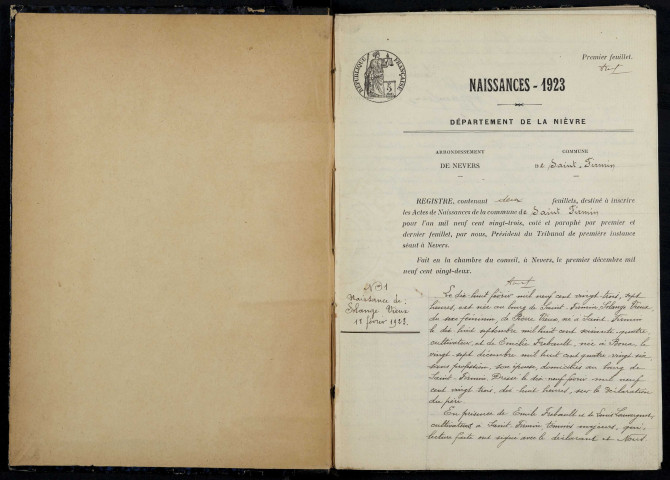 Premier feuillet.
RÉPUBLIQUE FRANÇAISE
NAISSANCES - 1923
DÉPARTEMENT DE LA NIÈVRE
ARRONDISSEMENT
DE NEVERS
COMMUNE
DE Saint-Firmin
REGISTRE, contenant deux feuillets, destiné à inscrire
les Actes de Naissances de la commune de Saint Firmin
pour l'an mil neuf cent vingt-trois, coté et paraphé par premier et
dernier feuillet, par nous, Président du Tribunal de première instance
séant à Nevers.
Fait en la chambre du conseil, à Nevers, le premier décembre mil
neuf cent vingt-deux.
N° 1
Naissance de:
Solange Vieux
18 février 1923.
Le dix huit février mil neuf cent vingt trois, sept
heures, est née au bourg de Saint-Firmin, Solange Vieux
du sexe féminin, de Vieux, né à Saint Firmin
le dix huit septembre mil huit cent soixante quatre
cultivateur, et de Emélie Trebault, née à Bona, le
vingt sept décembre mil huit cent quatre vingt six
sans profession, son épouse, domiciliés au bourg de
Saint-Firmin. Dressé le dix neuf février mil neuf
cent vingt trois, dix huit heures, sur la déclaration
du père.
En présence de Emile Trebault et de Louis
cultivateurs à Saint-Firmin, témoins majeurs, qui,
lecture faite ont signé avec le déclarant et Nous.